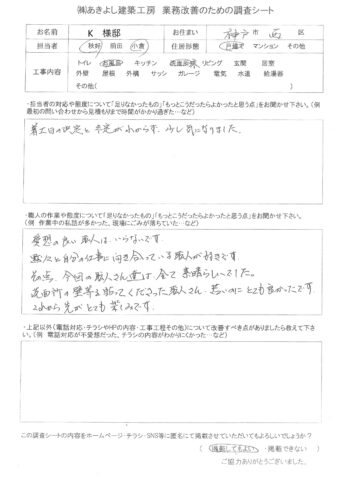 ㈱あきよし建築工房　業務改善のための調査シート
お名前　K 様邸　お住まい　神戸市 西 区
担当者　秋好　前田　小倉　住居形態　戸建て　マンション　その他
工事内容　トイレ　お風呂　キッチン　洗面所　リビング　玄関　居室
外壁　屋根　外構　サッシ　ガレージ　電気　水道　給湯器
その他(　　)
・担当者の対応や態度について「足りなかったもの」「もっとこうだったらよかったと思う点」をお聞かせ下さい。(例
最初の問い合わせから見積もりまで時間がかかり過ぎた…など)
着工日の決定と予定がわからず、少し気になりました。
・職人の作業や態度について「足りなかったもの」「もっとこうだったらよかったと思う点」をお聞かせ下さい。
(例　作業中の私語が多かった、現場にごみが落ちていた…など)
愛想の良い職人はいらないです。
黙々と自分の仕事に向き合っている職人が好きです。
その点、今回の職人さん達は全て素晴らしいでした。
洗面所の壁等を貼ってくださった職人さん、若いのにとても良かったです。
これから先がとても楽しみです。
・上記以外(電話対応・チラシやHPの内容・工事工程その他)について改善すべき点がありましたら教えて下さ
い。(例　電話対応が不愛想だった、チラシの内容がわかりにくかった…など)
この調査シートの内容をホームページ・チラシ・SNS等に匿名にて掲載させていただいてもよろしいでしょうか？
(　掲載してもよい　・掲載できない　)
ご協力ありがとうございました。